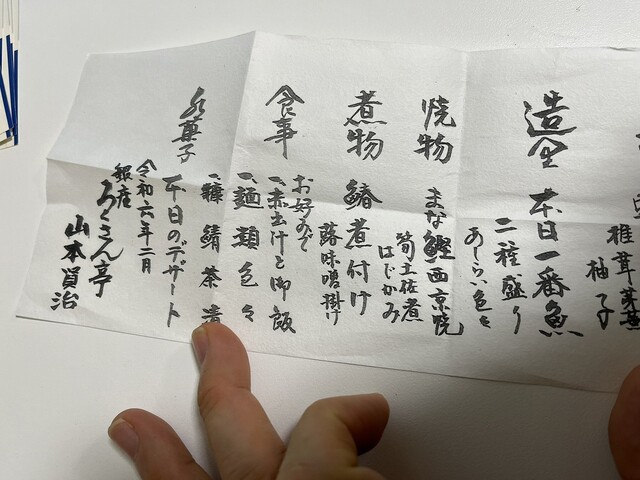 椎茸
柚子
造里 本日一番魚
二種盛り
あしらい色々
焼物 まな鰹西京焼
筍土佐煮
はじかみ
煮物 鰆煮付け
蕗味噌掛け
食事 お好みで
一、赤出汁と御飯
一、麺類色々
一、鯖茶漬
水菓子 本日のデザート
令和六年二月
銀座 ろくさん亭
山本賢治